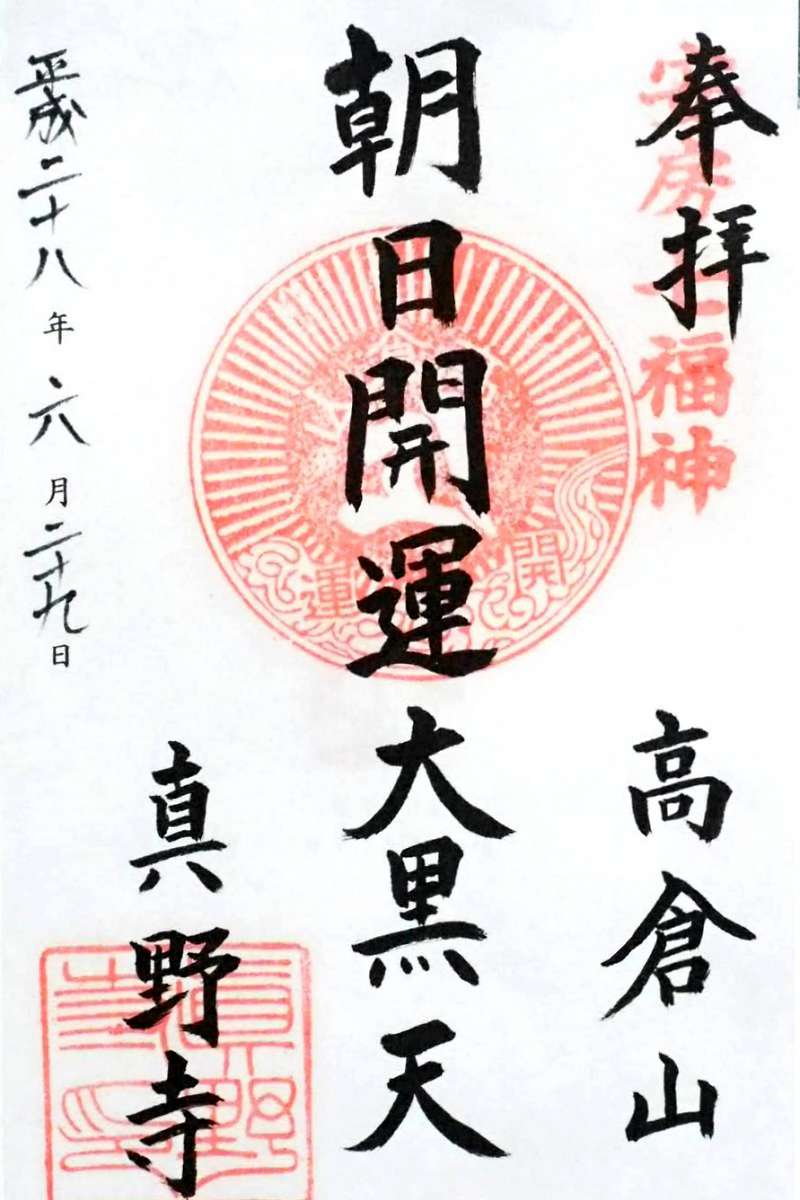 奉拝
安房七福神
高倉山
朝日開運大黒天
開運
真野寺
平成二十八年六月二十九日